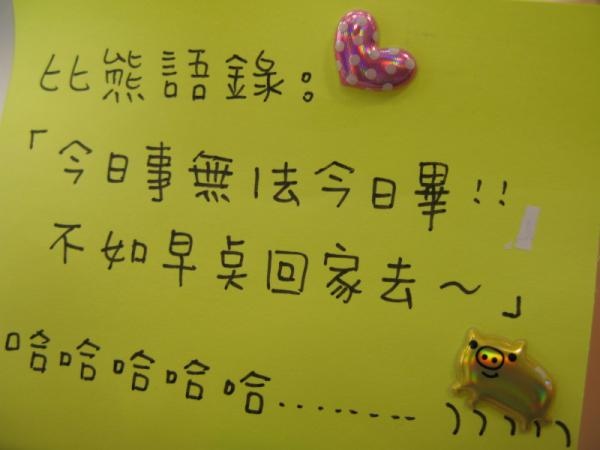 比熊語錄:
「今日事無法今日畢!!
不如早桌回家去~」
哈哈哈哈哈........)))))